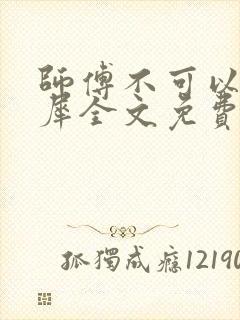 師傅不可以
犀全文免費
孤獨成癮12190